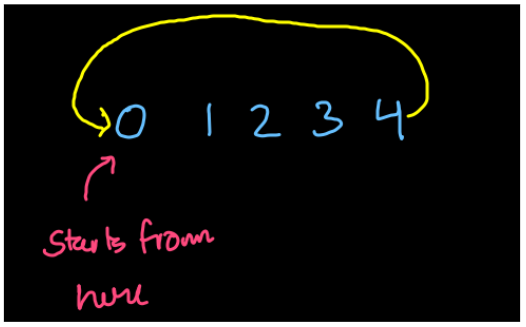 0 1 2 3 4
Starts from
here